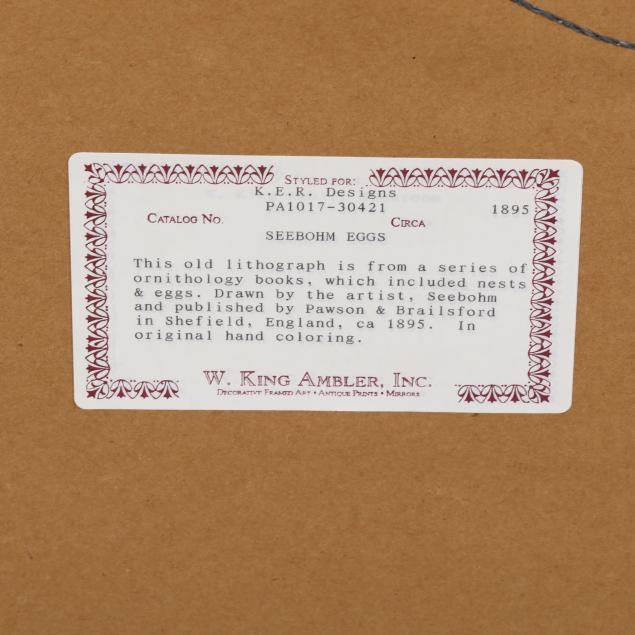 STYLED FOR:
K.E.R. Designs
PA1017-30421 1895
CATALOG NO. CIRCA
SEEBOHM EGGS
This old lithograph is from a series of
ornithology books, which included nests
& eggs. Drawn by the artist, Seebohm
and published by Pawson & Brailsford
in Shefield, England, ca 1895. In
original hand coloring.
W. KING AMBLER, INC.
DECORATIVE FRAMED ART • ANTIQUE PRINTS • MIRRORS